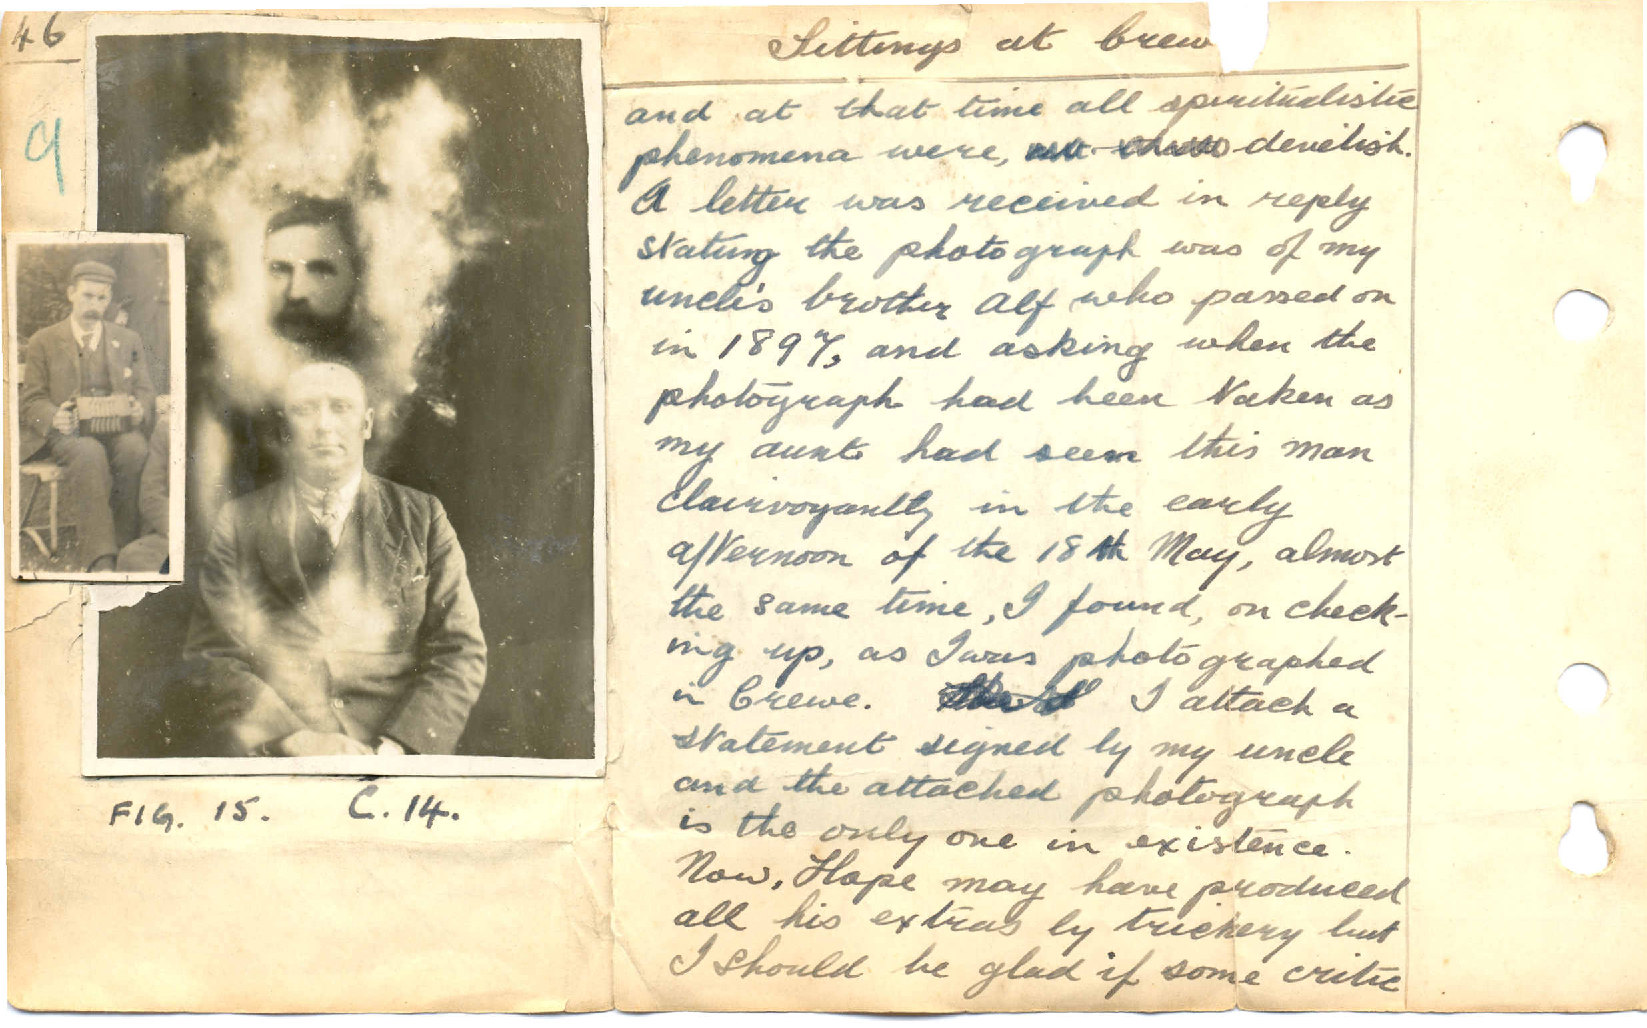 46
9
FIG. 15. C. 14.
Sittings at Crew
and at that time all spiritualistic
phenomena were, devilish.
A letter was received in reply
stating the photograph was of my
uncle's brother Alf who passed on
in 1897, and asking when the
photograph had been taken as
my aunt had seen this man
clairvoyantly in the early
afternoon of the 18th May, almost
the same time, I found, on check-
ing up, as I was photographed
in Crewe. I attach a
statement signed by my uncle
and the attached photograph
is the only one in existence.
Now, Hope may have produced
all his extras by trickery but
I should be glad if some critic